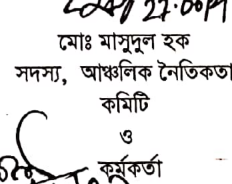 মোঃ মাসুদুল হক
সদস্য, আঞ্চলিক নৈতিকতা
কমিটি
ও
কর্মকর্তা